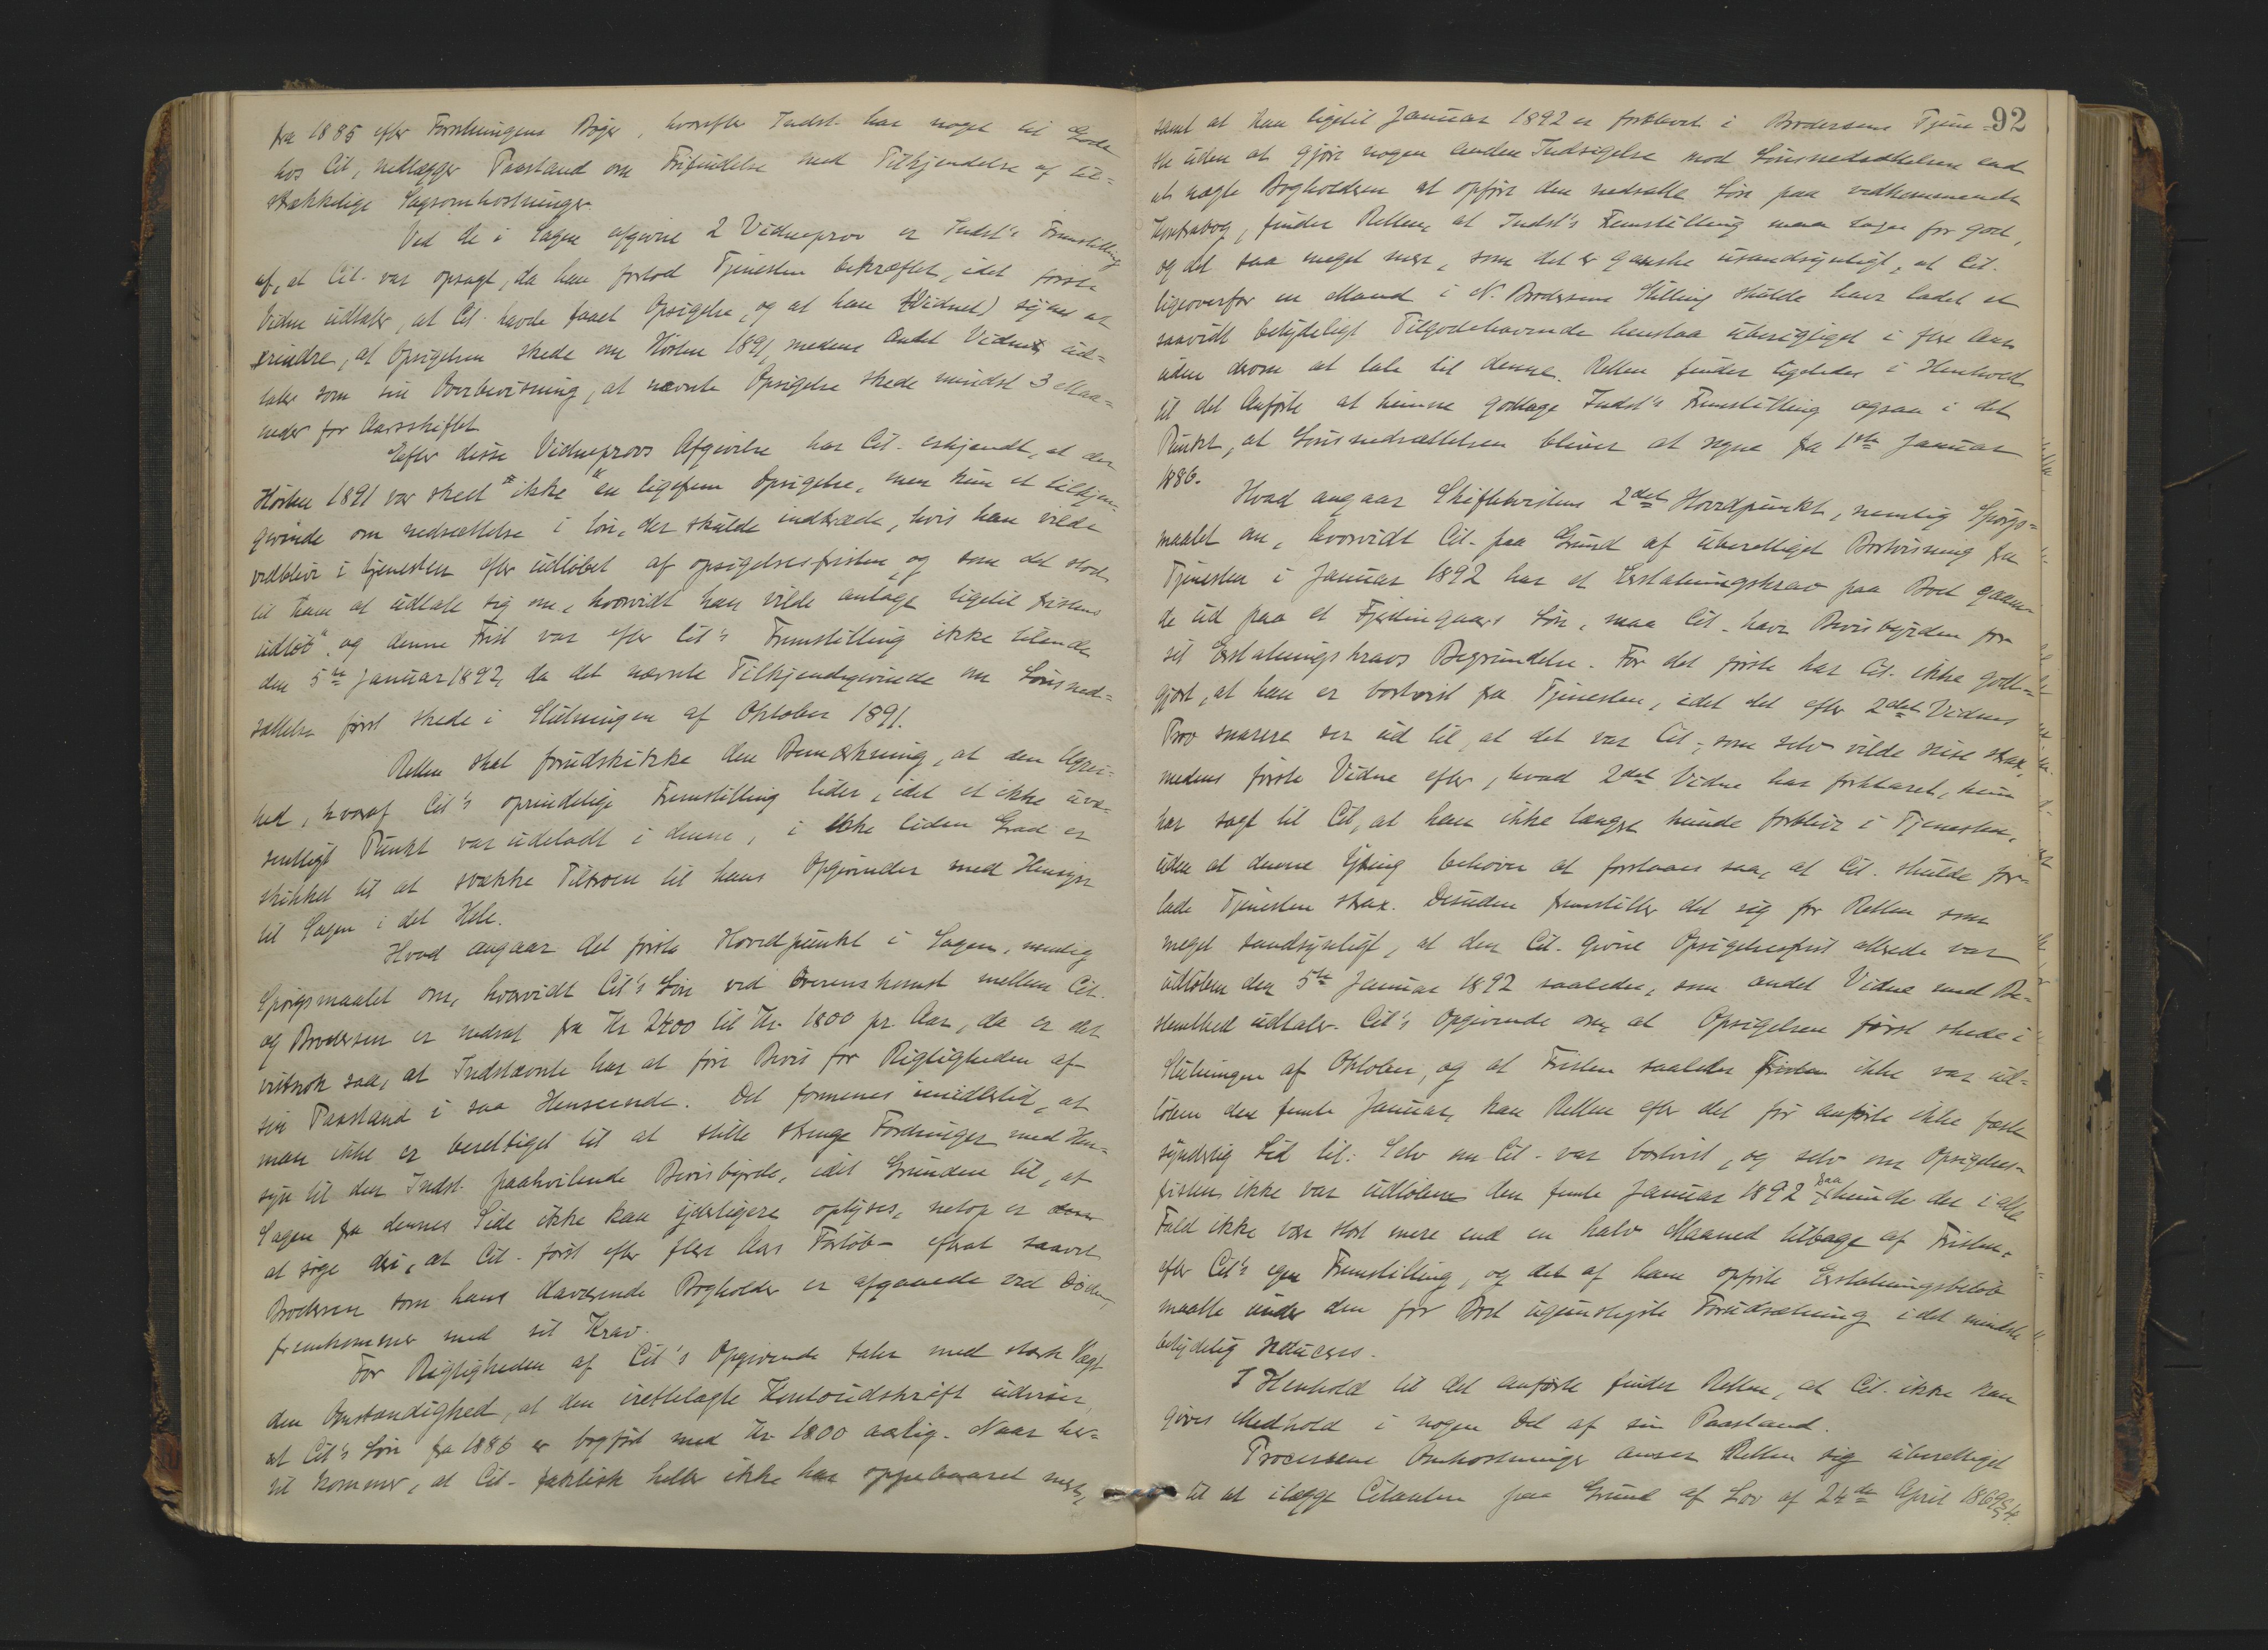 fra 1885 efter Forretningens Bøger, hvorefter Indst. har noget til Gode
hos Cit, nedlægger Paastand om Frifindelse med Tilkjendelse af til-
strækkelige Sagsomkostninger.
Ved de i Sagen afgivne 2 Vidneprov er Indst's Fremstilling
af, at Cit. var opsagt, da han forlod Tjenesten bekræftet, idet første
Vidne udtaler, at Cit. havde faaet Opsigelse, og at han (Vidnet) synes at
erindre, at Opsigelsen skede om Høsten 1891, medens andet Vidne ud-
taler som sin Overbevisning, at nævnte Opsigelse skede mindst 3 Maa-
neder før Aarsskiftet
Efter disse Vidneprovs Afgivelse har Cit. erkjendt, at der
Høsten 1891 var skeet "ikke en ligefrem Opsigelse, men kun et tilkjende-
givende om nedsættelse i løn, der skulde indtræde, hvis han vilde
vedblive i tjenesten efter udløbet af opsigelsesfristen, og som det stod
til ham at udtale sig om, hvorvidt han vilde antage ligetil fristens
udløb", og denne Frist var efter Cit's Fremstilling ikke tilende
den 5te Januar 1892, da det nævnte Tilkjendegivende om Lønsned-
sættelse først skede i Slutningen af Oktober 1891.
Retten skal forudskikke den Bemærkning, at den Ugrei-
hed, hvoraf Cit's oprindelige Fremstilling lider, idet et ikke uvæ-
sentligt Punkt var udeladt i denne, i ikke liden Grad er
skikket til at svække Tiltroen til hans Opgivender med Hensyn
til Sagen i det Hele.
Hvad angaar det første Hovedpunkt i Sagen, nemlig
Spørgsmaalet om, hvorvidt Cit's Løn ved Overenskomst mellem Cit.
og Brodersen er nedsat fra Kr 2400 til Kr. 1800 pr. Aar, da er det
vistnok saa, at Indstævnte har at føre Bevis for Rigtigheden af
sin Paastand i saa Henseende. Det formenes imidlertid, at
man ikke er berettiget til at stille strenge Fordringer med Hen-
syn til den Indst. paahvilende Bevisbyrde, idet Grunden til, at
Sagen fra dennes Side ikke kan yderligere oplyses, netop er
at søge deri, at Cit. først efter flere Aars Forløb - efterat saavel
Brodersen som hans daværende Bogholder er afgaaede ved Døden,
fremkommer med sit Krav.
For Rigtigheden af Cit's Opgivende taler med stærk Vægt
den Omstændighed, at den irettelagte Kontoudskrift udviser,
at Cit's Løn fra 1886 er bogført med Kr. 1800 aarlig. Naar her-
til kommer, at Cit. faktisk heller ikke har oppebaaret mere,
92
samt at han ligetil Januar 1892 er forblevet i Brodersens Tjene-
ste uden at gjøre nogen anden Indsigelse mod Lønsnedsættelsen end
at nægte Bogholderen at opføre den nedsatte Løn paa vedkommende
Kontrabog, finder Retten, at Indst's Fremstilling maa tages for god,
og det saa meget mere, som det er ganske usandsynligt, at Cit.
ligeoverfor en Mand i N. Brodersens Stilling skulde have ladet et
saavidt betydeligt Tilgodehavende henstaa uberigtiget i flere Aar
uden derom at tale til denne. Retten finder ligeledes i Henhold
til det Anførte at kunne godtage Indst's Fremstilling ogsaa i det
Punkt, at Lønsnedsættelsen bliver at regne fra 1ste Januar
1886.
Hvad angaar Skiftetvistens 2det Hovedpunkt, nemlig Spørgs-
maalet om, hvorvidt Cit. paa Grund af uberettiget Bortvisning fra
Tjenesten i Januar 1892 har et Erstatningskrav paa Boet gaaen-
de ud paa et Fjerdingaars Løn, maa Cit. have Bevisbyrden for
sit Erstatningskravs Begrundelse. For det første har Cit. ikke godt-
gjort, at han er bortvist fra Tjenesten, idet det efter 2det Vidnes
Prov snarere ser ud til, at det var Cit., som selv vilde reise strax,
medens første Vidne efter, hvad 2det Vidne har forklaret, kun
har sagt til Cit, at han ikke længre kunde forblive i Tjenesten,
uden at denne Ytring behøver at forstaaes saa, at Cit. skulde for-
lade Tjenesten strax. Desuden fremstiller det sig for Retten som
meget sandsynligt, at den Cit. givne Opsigelsesfrist allerede var
udløben den 5te Januar 1892 saaledes, som andet Vidne med Be-
stemthed udtaler. Cit's Opgivende om, at Opsigelsen først skede i
Slutningen af Oktober, og at Fristen saaledes ikke var ud-
løben den femte Januar, kan Retten efter det før anførte ikke fæste
synderlig Lid til. Selv om Cit. var bortvist, og selv om Opsigelses-
fristen ikke var udløben den femte Januar 1892 saa kunde der i alle
Fald ikke være stort mere end en halv Maaned tilbage af Fristen,
efter Cit's egen Fremstilling, og det af ham opførte Erstatningsbeløb
maatte under den for Boet ugunstigste Forudsætning i det mindste
betydelig reduceres.
I Henhold til det anførte finder Retten, at Cit. ikke kan
gives Medhold i nogen Del af sin Paastand.
Processens Omkostninger anser Retten sig uberettiget
til at ilægge Citanten paa Grund af Lov af 24de April 1869 § 4.